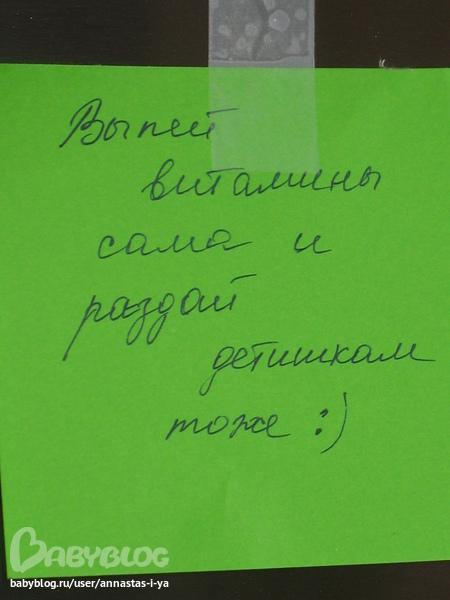 Выпей
витамины
сама и
раздай
детишкам
тоже :)
BABYBLOG
babyblog.ru/user/annastas-i-ya